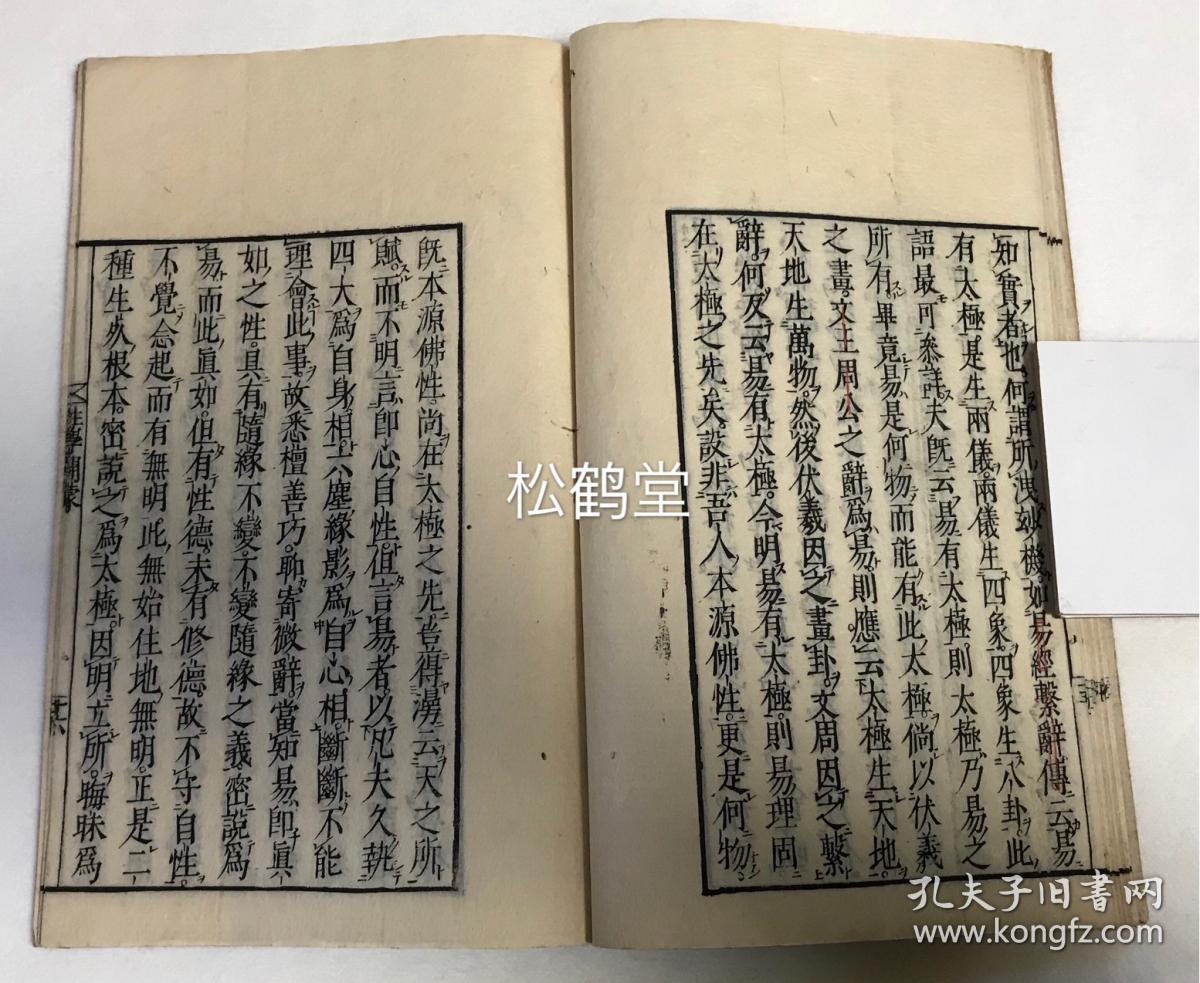 知實者也何謂所洩妙機如易經繫辭傳云易
有太極是生兩儀兩儀生四象四象生八卦此
語最可參詳夫既云易有太極則太極乃易之
所有畢竟易是何物而能有此太極倘以伏羲
之畫文王周公之辭爲易則應云太極生天地
天地生萬物然後伏羲因之畫卦文周因之繫
辭何反云易有太極今明易有太極則易理固
在太極之先矣設非吾人本源佛性更是何物
既本源佛性尚在太極之先豈得漫云天之所
賦而不明言即心自性但言易者以凡夫久執
四大爲自身相六塵緣影爲自心相斷斷不能
理會此事故悉檀善巧聊寄微辭當知易即眞
如之性具有隨緣不變不變隨緣之義密說爲
易而此眞如但有性德未有修德故不守自性
不覺念起而有無明此無始住地無明正是二
種生死根本密說之爲太極因明立所晦昧爲
性學開蒙
廿六
松鹤堂
孔夫子旧书网
www.kongfz.com